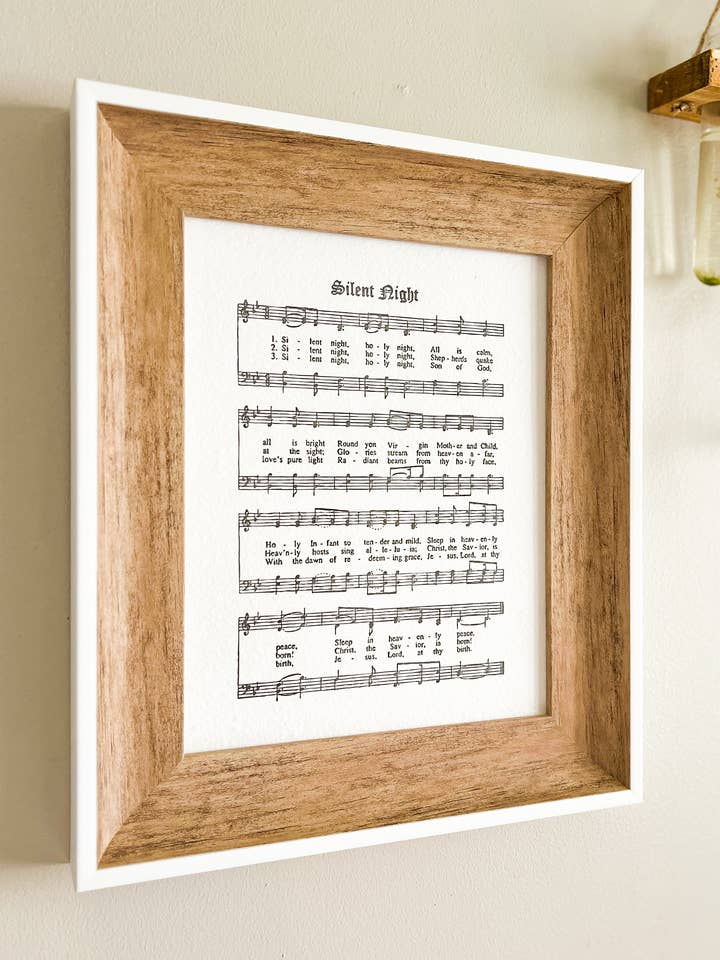 Silent Night
1. Si - lent night, ho - ly night, All is calm,
2. Si - lent night, ho - ly night, Shep - herds quake
3. Si - lent night, ho - ly night, Son of God,
all is bright Round yon Vir - gin Moth - er and Child.
at the sight; Glo - ries stream from heav - en a - far,
love's pure light Ra - diant beams from thy ho - ly face,
Ho - ly In - fant so ten - der and mild, Sleep in heav - en - ly
Heav'n - ly hosts sing al - le - lu - ia; Christ, the Sav - ior, is
With the dawn of re - deem - ing grace, Je - sus, Lord, at thy
peace, Sleep in heav - en - ly peace.
born! Christ, the Sav - ior, is born!
birth, Je - sus, Lord, at thy birth.